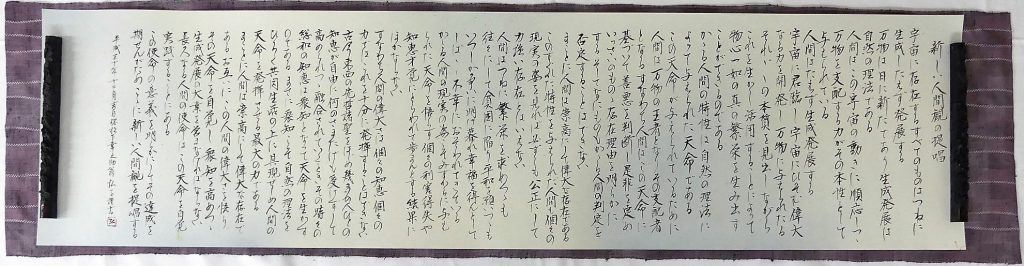 新しい人間観の提唱
宇宙に存在するすべてのものはつねに
生成したえず発展する
万物は日に新たであり生成発展は
自然の理法である
人間はこの宇宙の動きに順応しつつ
万物を支配する力がその本性として
与えられている
人間はたえず生成発展する
宇宙に君臨し宇宙にひそむ偉大
なる力を開発し万物に与えられたる
それぞれの本質を見出しながら
これを生かし活用することによって
物心一如の真の繁栄を生み出す
ことができるのである
かかる人間の特性は自然の理法に
よって与えられた天命である
この天命が与えられているために
人間は万物の王者となりその支配者
となるすなわち人間はこの天命に
基づいて善悪を判断し是非を定め
いっさいのものの存在理由を明らかに
するそしてなにものもかかる人間の判定を
否定することはできない
まことに人間は崇高にして偉大な存在である
このすぐれた特性を与えられた人間も個々の
現実の姿を見れば必ずしも公正にして
力強い存在とはいえない
人間はつねに繁栄を求めつつも
往々にして貧困に陥り平和を願いつつも
いつしか争いに明け暮れ幸福を得んとして
しばしば不幸におそわれてきている
かかる人間の現実の姿こそみずからに与え
られた天命を悟らず個々の利害得失や
知恵才覚にとらわれて歩まんとする結果に
ほかならない
すなわち人間の偉大さは個々の知恵個々の
力ではこれを十分に発揮することはできない
古今東西の先哲諸聖をはじめ幾多の人びとの
知恵が自由に何のさまたげも受けずして
高められつつ融合されていくときその時々の
総和の知恵は衆知となって天命を生かす
のであるまさに衆知こそ自然の理法を
ひろく共同生活の上に具現せしめ人間の
天命を発揮させる最大の力なのである
まことに人間は崇高にして偉大な存在で
あるお互いにこの人間の偉大さを悟り
その天命を自覚し衆知を高めつつ
生成発展の大業を営まなければならない
長久なる人間の使命はこの天命を自覚
実践することにある
この使命の意義を明らかにしその達成を
期せんがためここに新しい人間観を提唱する